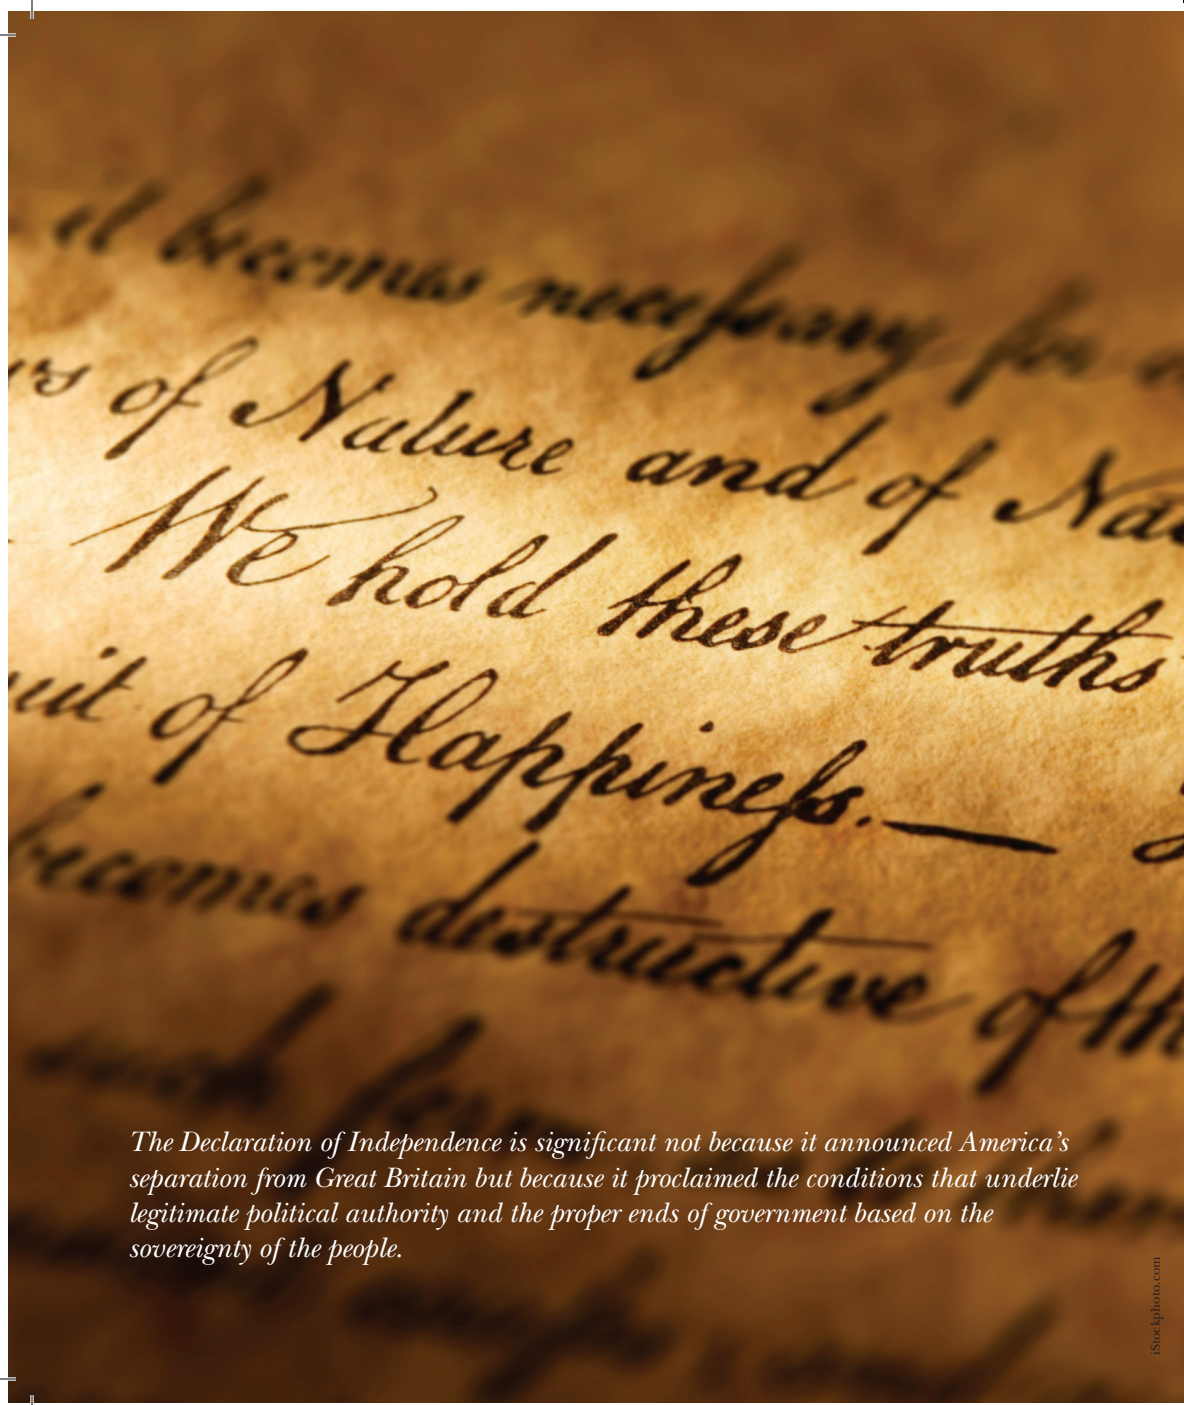 it becomes necessary for
of Nature and of
We hold these truths
of Happiness. —
becomes destructive of
The Declaration of Independence is significant not because it announced America’s
separation from Great Britain but because it proclaimed the conditions that underlie
legitimate political authority and the proper ends of government based on the
sovereignty of the people.
iStockphoto.com